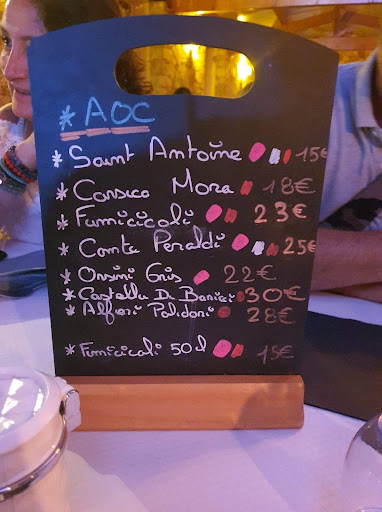 * AOC
* Saint Antoine 15€
* Corsica Mora 18€
* Fumicicoli 23€
* Comte Peraldi 25€
* Orsini Gris 22€
* Castellu Di Baricci 30€
* Alfieri Polidori 28€
* Fumicicoli 50cl 15€